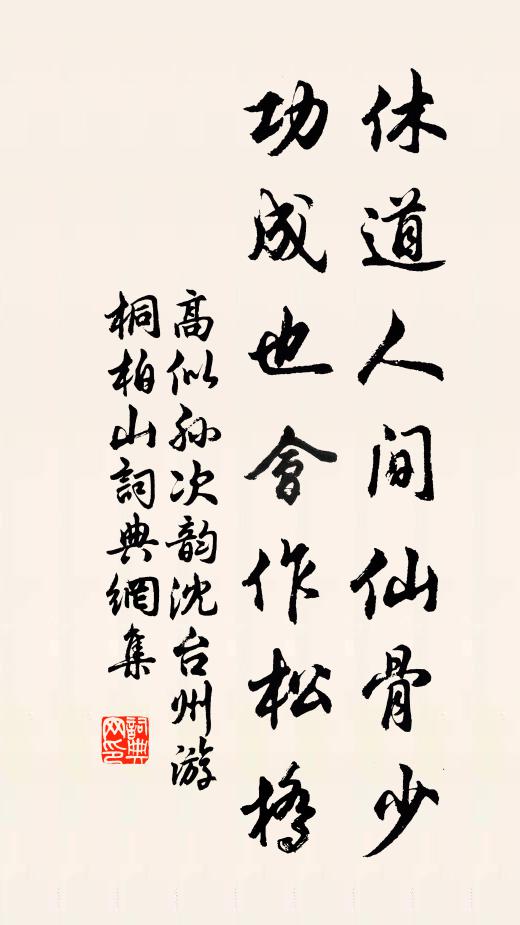 休道人间仙骨少
功成也會作松橋
高似孙次韵沈台州游
桐柏山詞典網集
詞典网印